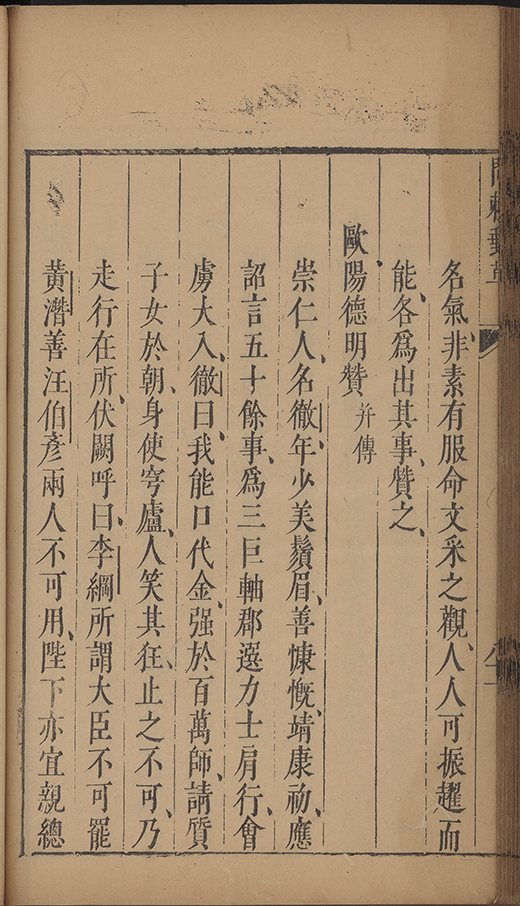 名氣、非素有服命文采之觀、人人可振趯而
能、各爲出其事、贊之、
歐陽德明贊 并傳
崇仁人、名徹、年少美鬚眉、善慷慨、靖康初、應
詔言五十餘事、爲三巨軸郡選力士肩行、會
虜大入、徹曰、我能口代金、强於百萬師、請質
子女於朝、身使穹廬、人笑其狂、止之不可、乃
走行在所、伏闕呼曰、李綱所謂大臣不可罷
黄潛善汪伯彥兩人不可用、陛下亦宜親總